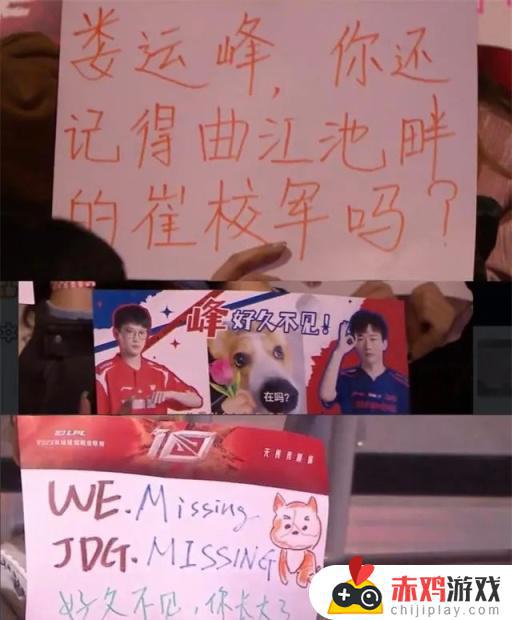 娄运峰，你还
记得曲江池畔
的崔校军吗？
峰 好久不见！
在吗？
LPL
WE. Missing
JDG. MISSING
好久不见，你长大了
赤鸡游戏
chijiplay.com